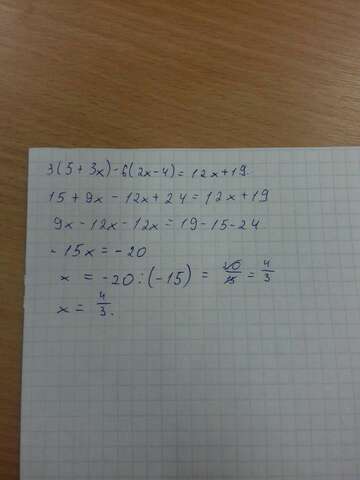 3(5+3x)-6(2x-4)=12x+19.
15+9x-12x+24=12x+19
9x-12x-12x=19-15-24
-15x=-20
x = -20:(-15) = 20/15 = 4/3
x = 4/3.